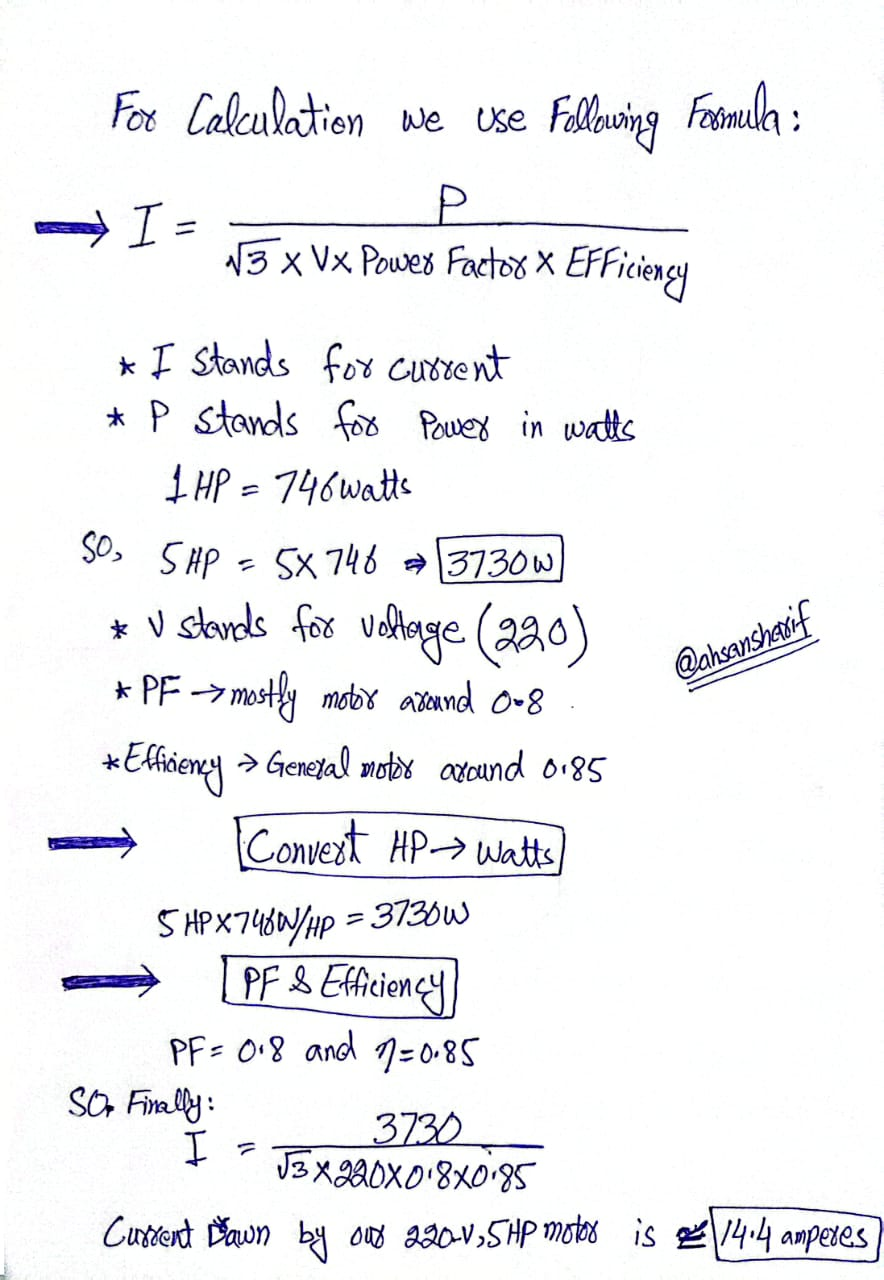 For Calculation we use Following Formula:
→ I = P
√3 x V x Power Factor x EFFiciency
* I Stands for current
* P stands for Power in watts
1 HP = 746 watts
So, 5 HP = 5 x 746 ⇒ 3730 W
* V stands for voltage (220)
@ahsansharif
* PF → mostly motor around 0.8
* Efficiency → General motor around 0.85
→ Convert HP → watts
5 HP x 746W/HP = 3730W
→ PF & Efficiency
PF = 0.8 and η = 0.85
So, Finally:
I = 3730
√3 x 220 x 0.8 x 0.85
Current Dawn by our 220-V, 5HP motor is ≅ 14.4 amperes